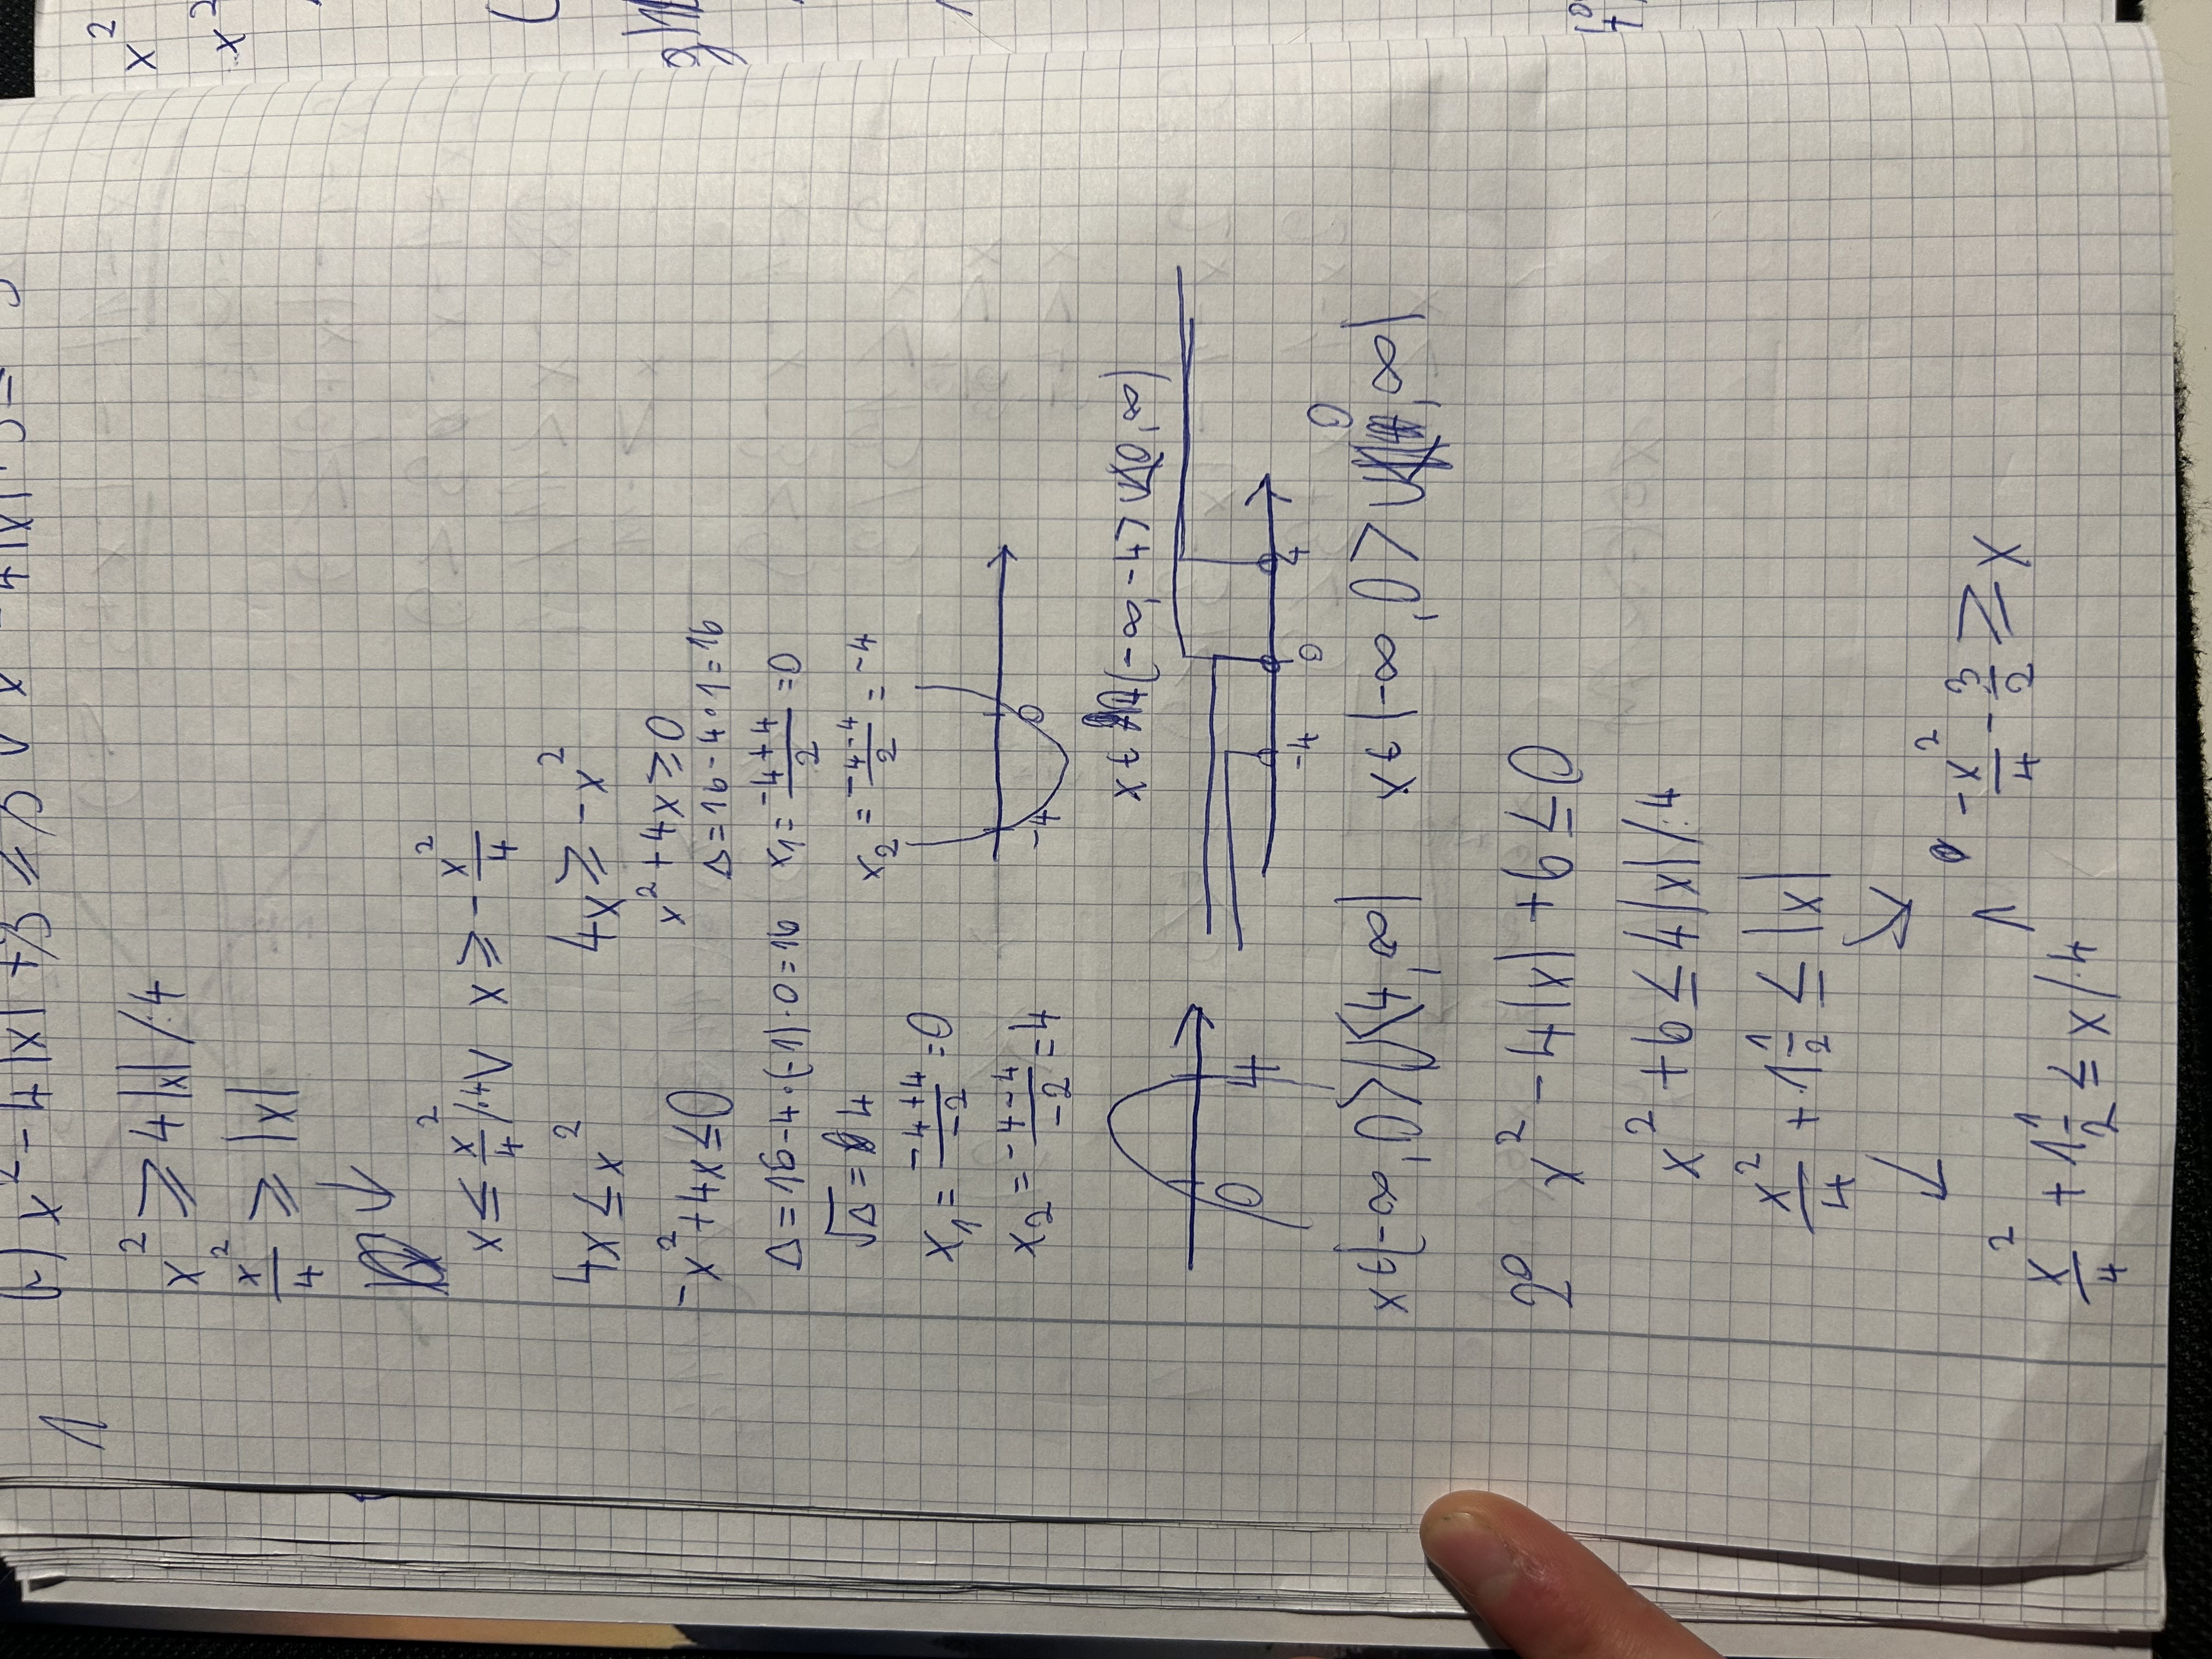 x² - 4|x| + 3 ≤ 3 ∨ x² - 4|x| + 3 =
1
x² ≥ 4|x| /:4
x²/4 ≥ |x|
x ≤ x²/4 /·4 ∨ x ≥ -x²/4
4x ≤ x² 4x ≥ -x²
-x² + 4x ≤ 0 x² + 4x ≥ 0
Δ = 16 - 4·(-1)·0 = 16 Δ = 16 - 4·0·1 = 16
√Δ = 4 x₁ = (-4+4)/2 = 0
x₁ = (-4+4)/-2 = 0 x₂ = (-4-4)/2 = -4
x₂ = (-4-4)/-2 = 4
0 4 -4 0
x ∈ (-∞, -4> ∪ <0, ∞)
-4 0 4
x ∈ (-∞, 0> ∪ <4, ∞) x ∈ (-∞, 0> ∪ 0, ∞)
2° x² - 4|x| + 6 ≤ 0
x² + 6 ≤ 4|x| /:4
x²/4 + 1 1/2 ≤ |x|
x²/4 + 1 1/2 ≤ x /·4 ∧ -x²/4 - 3/2 ≥ x
x²
x²